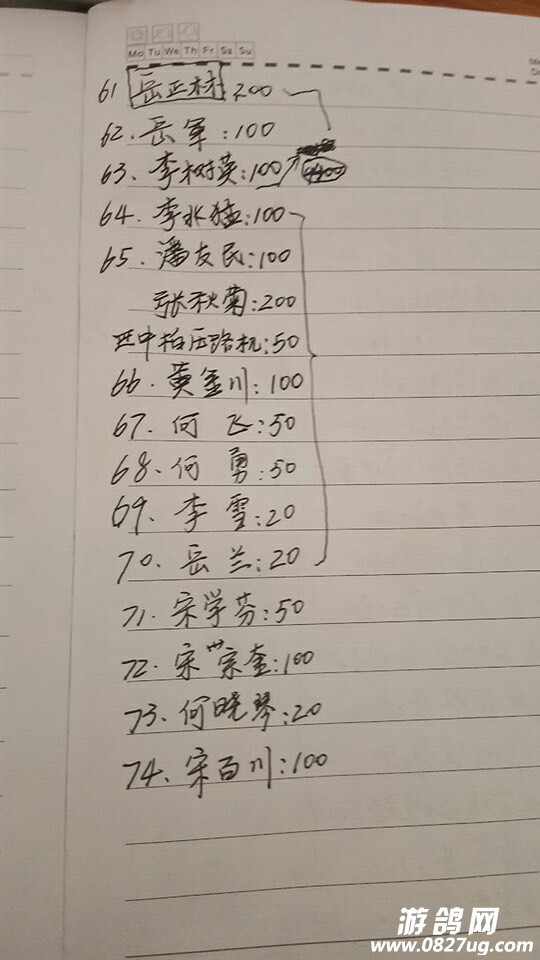 Mo Tu We Th Fr Sa Su
61 岳正林 200
62. 岳军:100
63. 李树英:100 4400
64. 李水猛:100
65. 潘友民:100
张秋菊:200
巴中柏压路机:50
66. 黄金川:100
67. 何飞:50
68. 何勇:50
69. 李雪:20
70. 岳兰:20
71. 宋学芬:50
72. 宋宗奎:100
73. 何晓琴:20
74. 宋百川:100
游鸽网
www.0827ug.com